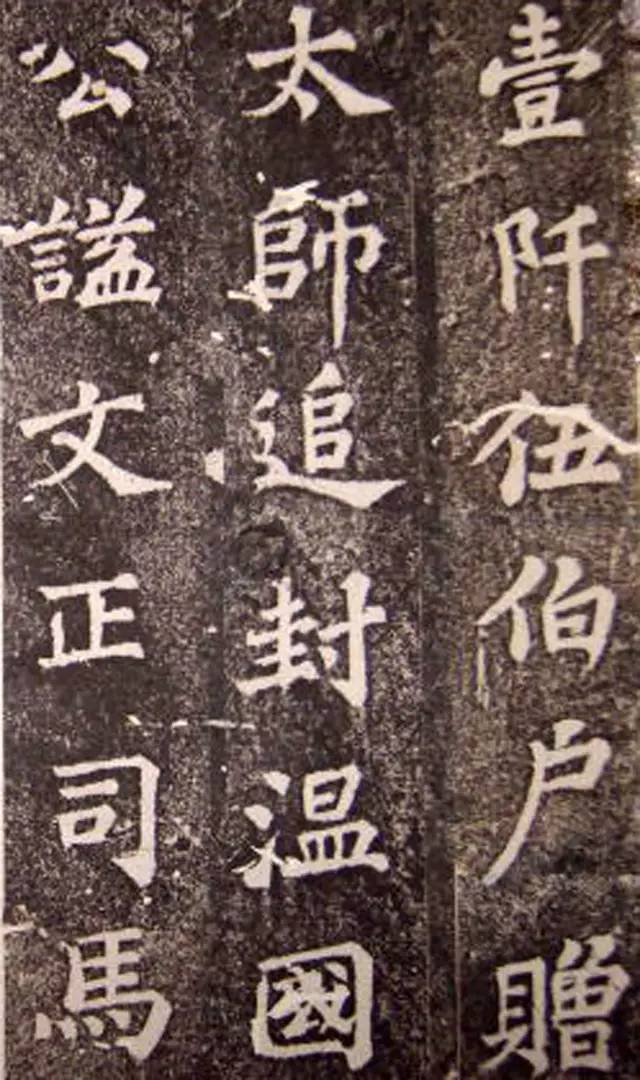 壹阡伍伯户贈
太師追封溫國
公謚文正司馬